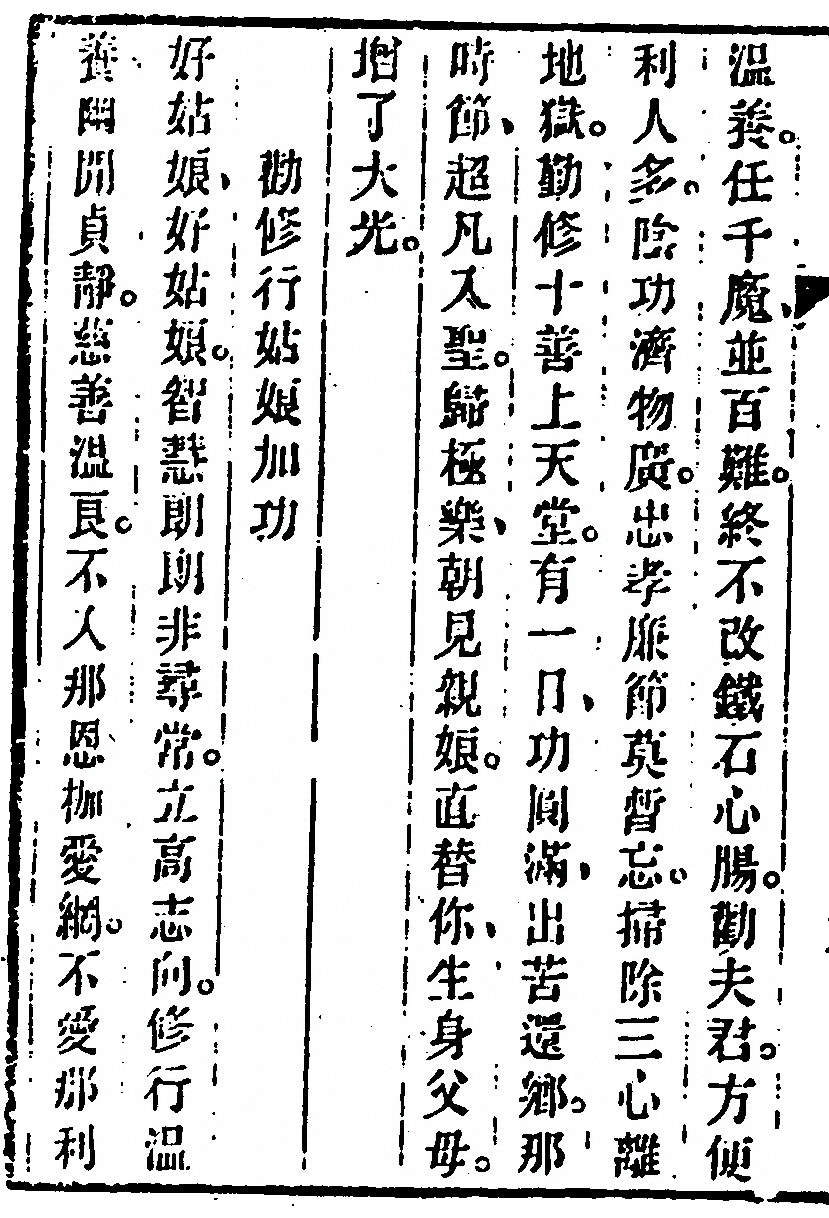 溫養。任千魔、並百難。終不改鐵石心腸。勸夫君。方便
利人多。陰功濟物廣。忠孝廉節莫暫忘。掃除三心離
地獄。勤修十善上天堂。有一日、功圓滿、出苦還鄉。那
時節、超凡入聖。歸極樂、朝見親娘。直替你、生身父母。
增了大光。
勸修行姑娘加功
好姑娘、好姑娘。智慧朗朗非尋常。立高志向。修行溫
養幽閒貞靜。慈善溫良。不入那恩枷愛網。不愛那利